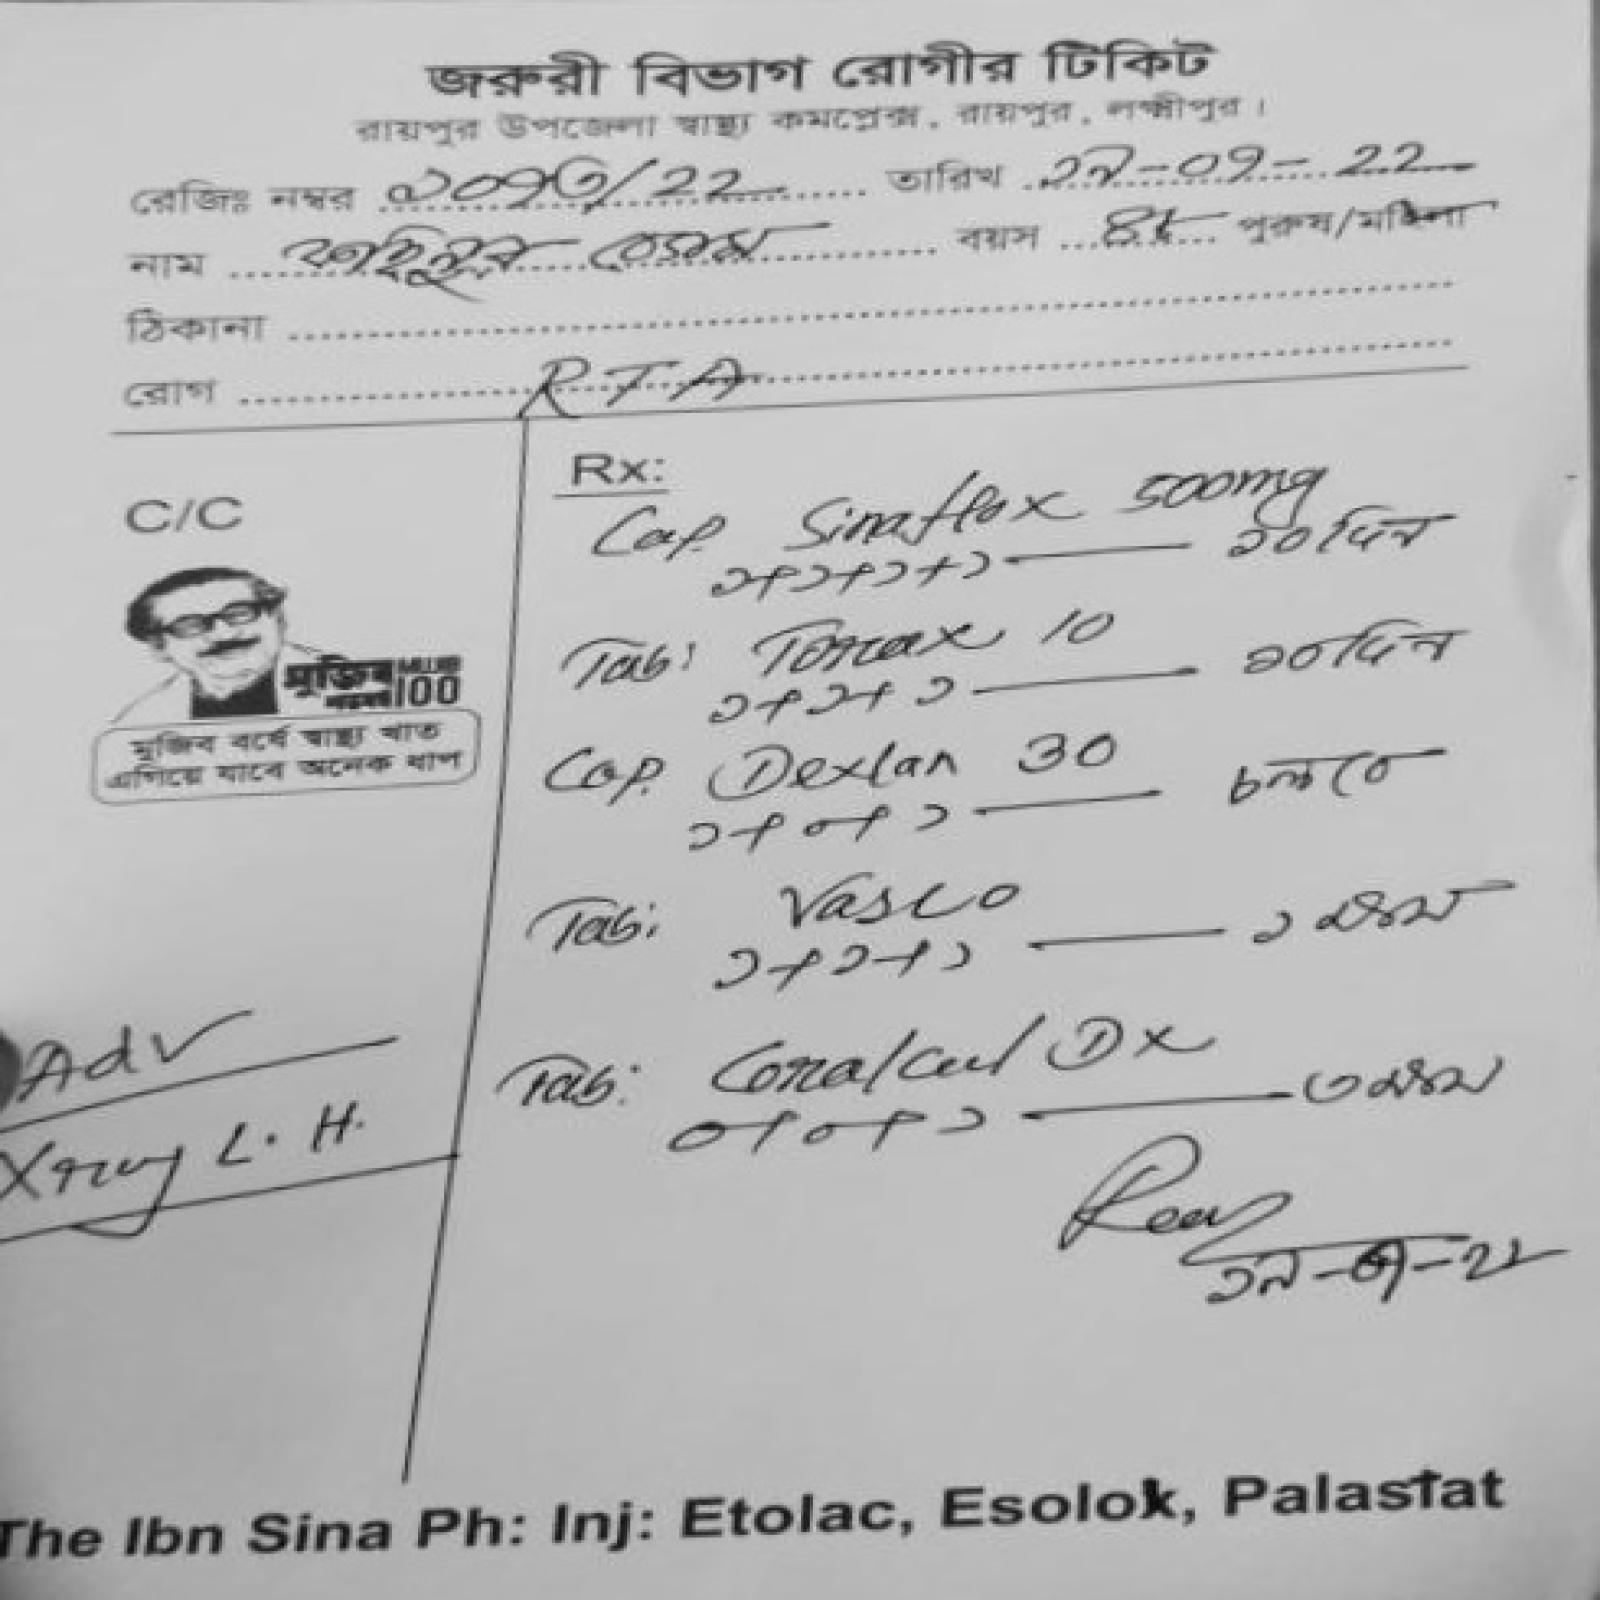 জরুরী বিভাগ রোগীর টিকিট
রায়পুর উপজেলা স্বাস্থ্য কমপ্লেক্স, রায়পুর, লক্ষ্মীপুর।
রেজিঃ নম্বর /২২ তারিখ ১৭-০৭-২২
নাম বয়স ৪৮ পুরুষ/মহিলা
ঠিকানা
রোগ RTA
C/C
মুজিব
শতবর্ষ 100
মুজিব বর্ষে স্বাস্থ্য খাত
এগিয়ে যাবে অনেক ধাপ
Adv
Xray L. H.
Rx:
Cap. Sinaflox 500mg
১+১+১+১ — ১০দিন
Tab: Torax 10
১+১+১ — ১০দিন
Cap. Dexlan 30
১+০+১ — চলবে
Tab: Vasco
১+১+১ — ১ মাস
Tab: Coralcal Dx
০+০+১ — ৩ মাস
১৭-৭-২২
The Ibn Sina Ph: Inj: Etolac, Esolok, Palastat